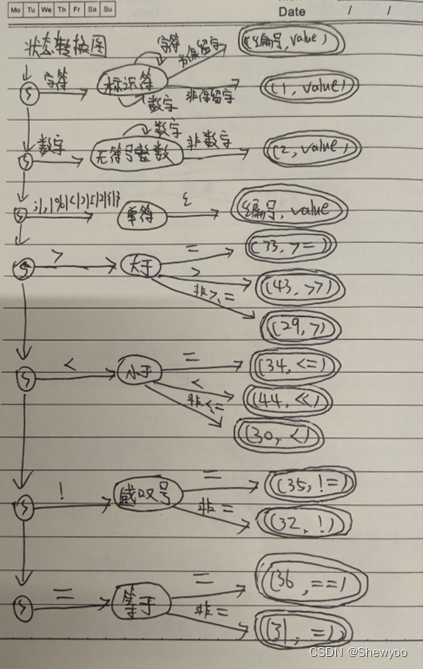 Mo Tu We Th Fr Sa Su
Date / /
状态转换图
字符
为保留字 (编号, value)
S 字符 标识符
数字 非保留字 (1, value)
数字
S 数字 无符号整数 非数字 (2, value)
S 单符 ε (编号, value)
S > 大于 = (33, >=)
> (43, >>)
非>,= (29, >)
S < 小于 = (34, <=)
< (44, <<)
非<,= (30, <)
S ! 感叹号 = (35, !=)
非= (32, !)
S = 等于 = (36, ==)
非= (31, =)
CSDN @Shewyoo